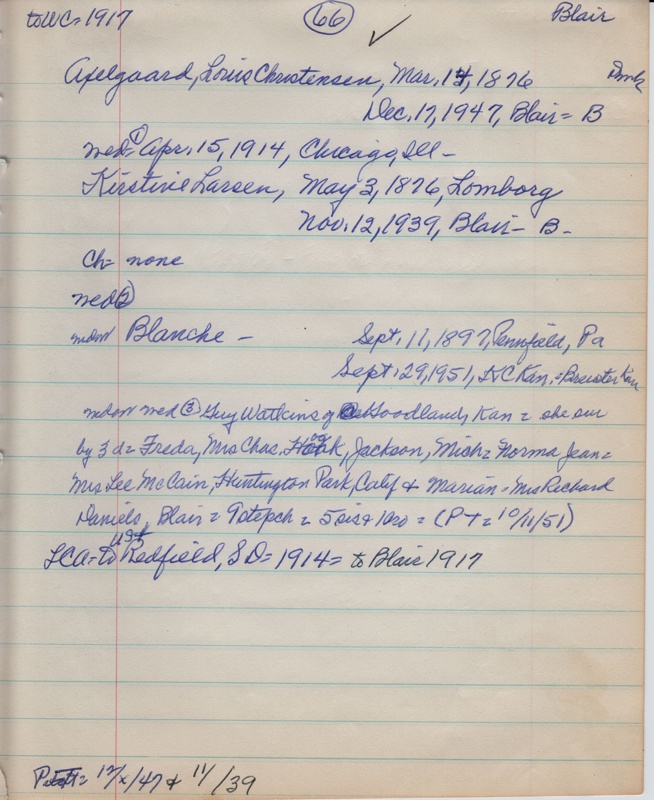 to WC = 1917 66 Blair
Axelgaard, Louis Christensen, Mar. 14, 1876 Dmk
Dec. 17, 1947, Blair = B
med ① = Apr. 15, 1914, Chicago, Ill -
Kirstine Larsen, May 3, 1876, Lomborg
Nov. 12, 1939, Blair - B -
Ch = none
med ②
widow Blanche - Sept. 11, 1897, Pennfield, Pa
Sept. 29, 1951, KC Kan. = Brewster Kan
widow med ③ Guy Watkins of Goodland, Kan = she sur
by 3 d = Freda, Mrs Chas. Jackson, Mich = Norma Jean =
Mrs Lee McCain, Huntington Park, Calif & Marian = Mrs Richard
Daniels, Blair = 9 stepch = 5 sis & 1 bro = (PT = 10/11/51)
LCA = to US & Redfield, SD = 1914 = to Blair 1917
= 12/x/47 & 11/39